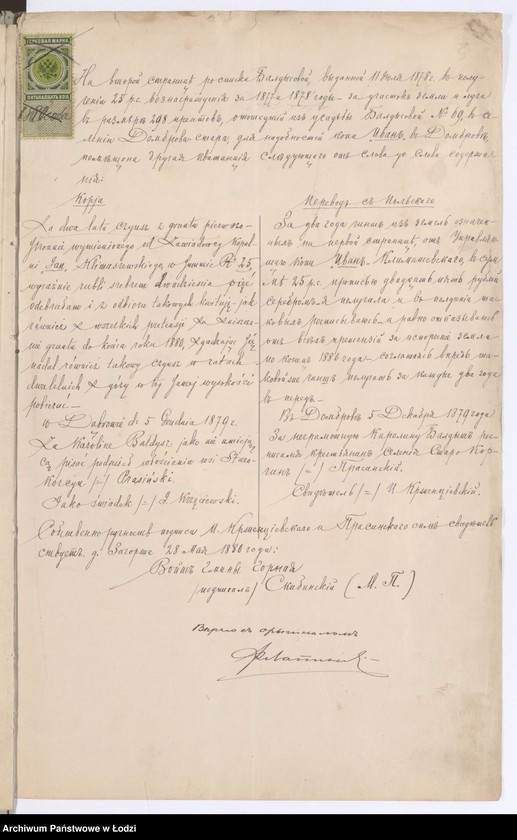 ГЕРБОВАЯ МАРКА
На второй страницѣ росписка Балдысовой выданной 11 Iюля 1878 г. въ полу-
ченiи 25 р.с. вознагражденiя за 1877 и 1878 годы - за участокъ земли и луга
въ размѣрѣ 298 прентовъ, отошедшiй изъ усадьбы Балдысовой № 69, въ се-
ленiи Домброва-стара, для надобностей копи Иванъ, въ Домбровѣ,
помѣщена другая квитанцiя слѣдующаго отъ слова до слова содержа-
нiя:
Kopja
Za dwa lata czynsz z gruntu pierwszo-
stronnie wymienionego od Zawiadowcy Kopal-
ni Jan, Klimaszewskiego w summie Rs 25,
wyraźnie rubli srebrem dwadzieścia pięć
odebrałam i z odbioru takowych kwituję, jak
również z wszelkich pretensji za zniszcze-
nie gruntu do końca roku 1880, zgadzając się
nadal również takowy czynsz w ratach
dwuletnich z góry w tej samej wysokości
pobierać.-
w Dąbrowie d. 5 Grudnia 1879 r.
Za Karolinę Baldys jako nie umieją-
cą pisać podpisał włościanin wsi Staro-
Korzyn /=/ Prasiński.
Jako świadek /=/ J. Krzyciewski.
Переводъ съ Польскаго
За два года чиншъ изъ земель означен-
ныхъ на первой страницѣ, отъ Управля-
ющаго копи Иванъ, Климашевскаго, въ сум-
мѣ 25 р.с. прописью двадцать пять рублей
серебромъ получила и въ полученiи та-
ковыхъ росписываюсь и равно отказываюсь
отъ всѣхъ претензiй за испорченiе земли
по конецъ 1880 года - согласясь впредь та-
ковой же чиншъ получать за каждые два года
въ передъ.-
Въ Домбровѣ 5 Декабря 1879 года
За неграмотную Каролину Балдысъ рос-
писался крестьянинъ селенiя Старо Кор-
чинъ /=/ Прасинскiй.
Свидѣтель /=/ И. Крженцiевскiй.
Собственноручность подписи И. Крженцiевскаго и Прасинскаго симъ свидѣтель-
ствуетъ. д. Загорже 28 Мая 1880 года:
Войтъ Гмины Горная
/подписалъ/ Скибинскiй (М. П.)
Вѣрно съ оригиналомъ
Archiwum Państwowe w Łodzi